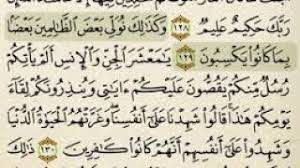 رَبَّكَ حَكِيمٌ عَلِيمٌ ١٢٨ وَكَذَٰلِكَ نُوَلِّى بَعْضَ ٱلظَّٰلِمِينَ بَعْضًۢا
بِمَا كَانُوا۟ يَكْسِبُونَ ١٢٩ يَٰمَعْشَرَ ٱلْجِنِّ وَٱلْإِنسِ أَلَمْ يَأْتِكُمْ
رُسُلٌ مِّنكُمْ يَقُصُّونَ عَلَيْكُمْ ءَايَٰتِى وَيُنذِرُونَكُمْ لِقَآءَ
يَوْمِكُمْ هَٰذَا قَالُوا۟ شَهِدْنَا عَلَىٰٓ أَنفُسِنَا وَغَرَّتْهُمُ ٱلْحَيَوٰةُ ٱلدُّنْيَا
وَشَهِدُوا۟ عَلَىٰٓ أَنفُسِهِمْ أَنَّهُمْ كَانُوا۟ كَٰفِرِينَ ١٣٠ ذَٰلِكَ